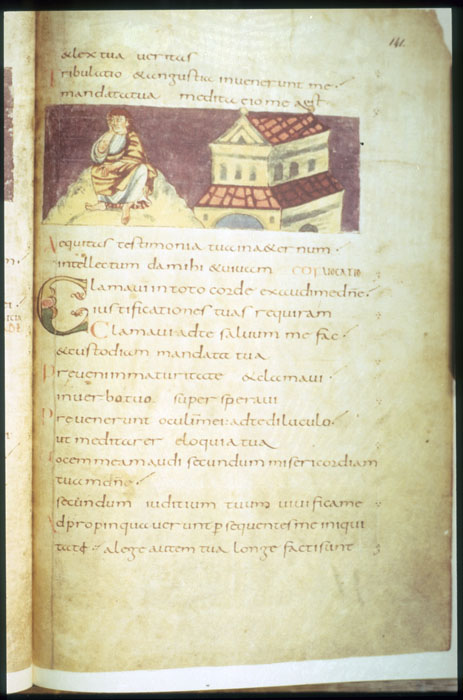 141.
& lex tua ueritas
Tribulatio & angustia inuenerunt me
mandata tua meditatio mea est
Aequitas testimonia tua in aeternum
intellectum da mihi & uiuam
Clamaui in toto corde exaudi me dñe
iustificationes tuas requiram
Clamaui ad te saluum me fac
& custodiam mandata tua
Preueni in maturitate & clamaui
in uerbo tuo super speraui
Preuenerunt oculi mei ad te diluculo
ut meditarer eloquia tua
Uocem meam audi secundum misericordiam
tuam dñe
secundum iuditium tuum uiuifica me
Adpropinquauerunt persequentes me iniqui
a lege autem tua longe facti sunt